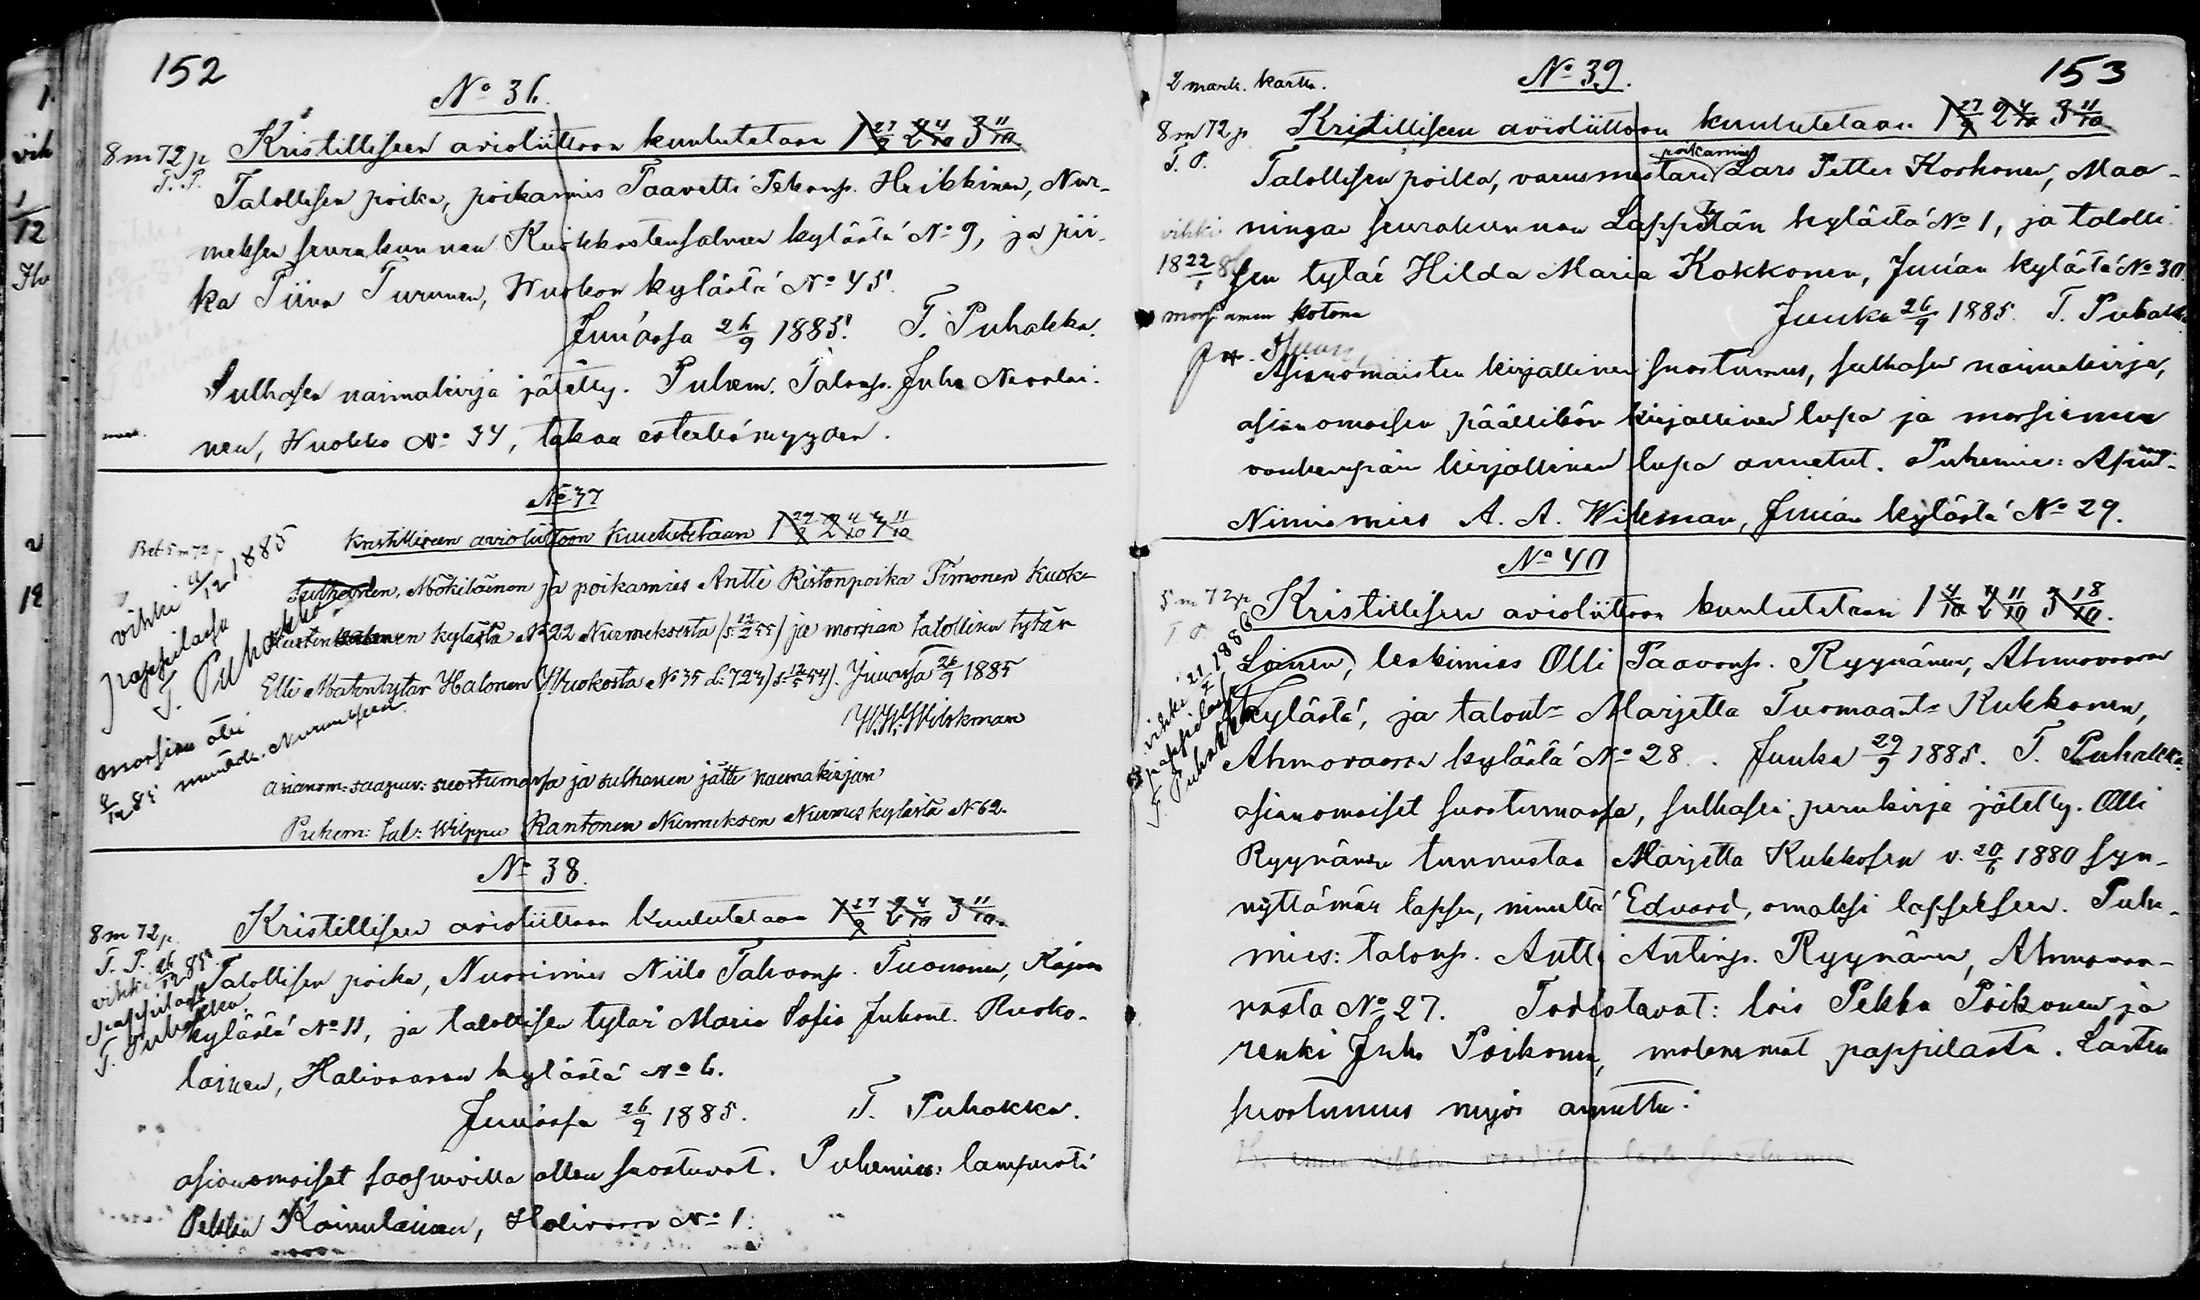 152
No 36.
8 m 72 p
T. P.
Kristilliseen avioliittoon kuulutetaan 1 27/9 2 4/10 3 11/10
Talollisen poika, poikamies Taavetti Pekanp. Heikkinen, Nur-
meksen seurakunnan Kuokkastensalmen kylästä No 9, ja pii-
ka Tiina Turunen, Wuokon kylästä No 45.
Juuassa 26/9 1885. T. Puhakka.
Sulhasen naimakirja jätetty. Puhem. Talonp. Juho Nevalai-
nen, Wuokko No 34, takaa esteettömyyden.
No 37
Bet. 5 m 72 p
vihki 4/12 1885
pappilassa
T. Puhakka
morsian oli
muutt. Nurmekseen
4/12 85
Kristilliseen avioliittoon Kuulutetaan 1 27/9 2 4/10 3 11/10
Sulhanen, Mökiläinen ja poikamies Antti Ristonpoika Timonen Kuok-
kylästä No 22 Nurmeksesta (s. 12/2 55) ja morsian talollisen tytär
Elli Matintytär Halonen Wuokosta No 35 (s. 12/5 54). Juuassa 26/9 1885
W. W. Wilskman
Asianom: saapuv: suostumassa ja sulhanen jätti naimakirjan
Puhem: tal: Wilppu Rantonen Nurmeksen Nurmeskylästä No 62.
No 38.
8 m 72 p.
T. P.
vihki 26/12 85
pappilassa
T. Puhakka
Kristilliseen avioliittoon kuulutetaan 1 27/9 2 4/10 3 11/10
Talollisen poika, Nuorimies Niilo Tahvonp. Tuononen, Kajoon
kylästä No 11, ja talollisen tytär Maria Sofia Juhont. Ruoko-
lainen, Halivaaran kylästä No 6.
Juuassa 26/9 1885. T. Puhakka.
asianomaiset saapuvilla ollen suostuvat. Puhemies: lampuoti
Pekka Kainulainen, Halivaara No 1.
153
2 mark. kartta.
No 39.
8 m 72 p
T. P.
vihki
18 22/1 86
morsiamen kotona
Kristilliseen avioliittoon kuulutetaan 1 27/9 2 4/10 3 11/10
poikamies
Talollisen poika, varusmestari Lars Petter Korhonen, Maa-
ningan seurakunnan kylästä No 1, ja talolli-
sen tytär Hilda Maria Kokkonen, Juuan kylästä No 30.
Juuka 26/9 1885. T. Puhakka.
Asianomaisten kirjallinen suostumus, sulhasen naimakirja,
asianomaisen päällikön kirjallinen lupa ja morsiamen
vanhempain kirjallinen lupa annetut. Puhemies:
Nimismies A. A. Wikman, Juuan kylästä No 29.
No 40
5 m 72 p
T. P.
vihki 21/2 1886
pappilassa
T. Puhakka
Kristilliseen avioliittoon kuulutetaan 1 4/10 2 11/10 3 18/10.
Loinen, leskimies Olli Paavonp. Ryynänen, Ahmovaaran
kylästä, ja talont. Marjetta Tuomaant. Kukkonen,
Ahmovaaran kylästä No 28. Juuka 29/9 1885. T. Puhakka.
asianomaiset suostumassa, sulhasen perukirja jätetty. Olli
Ryynänen tunnustaa Marjetta Kukkosen v. 20/6 1880 syn-
nyttämän lapsen, nimeltä Edvard, omaksi lapsekseen. Puhe-
mies: talonp. Antti Antinp. Ryynänen, Ahmovaa-
rasta No 27. Todistavat: lois Pekka Poikonen ja
renki Juho Poikonen, molemmat pappilasta. Lasten
suostumus myös annettu.